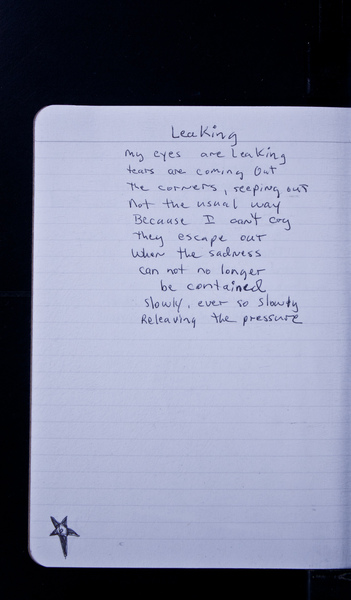 Leaking
my eyes are leaking
tears are coming out
the corners, seeping out
Not the usual way
Because I can't cry
they escape out
When the sadness
can not no longer
be contained
slowly, ever so slowly
Releaving the pressure